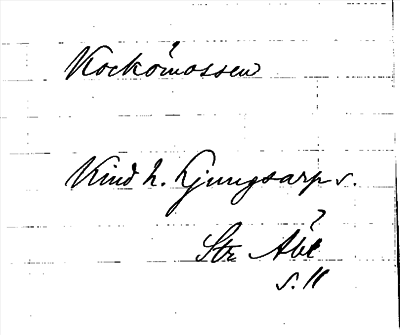 Kockömossen
Kind h. Ljungsarp s.
Str
s. 11